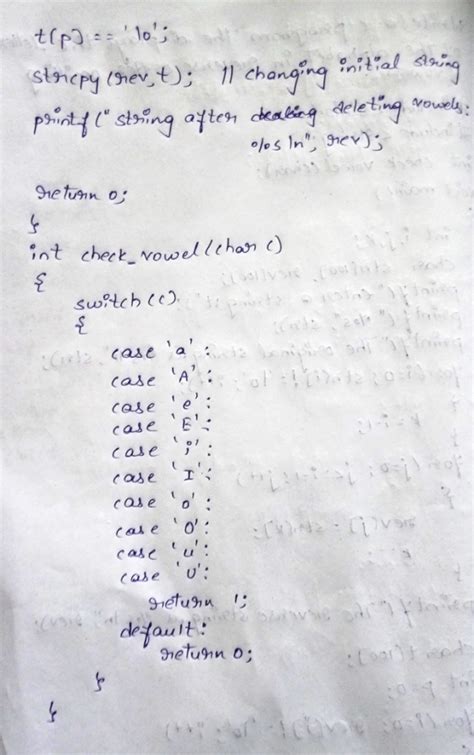 t[p] == '\0';
strcpy (rev, t); // changing initial string
printf (" string after deleting vowels:
%s \n", rev);
return 0;
}
int check_vowel (char c)
{
switch (c)
{
case 'a' :
case 'A' :
case 'e' :
case 'E' :
case 'i' :
case 'I' :
case 'o' :
case 'O' :
case 'u' :
case 'U' :
return 1;
default :
return 0;
}
}